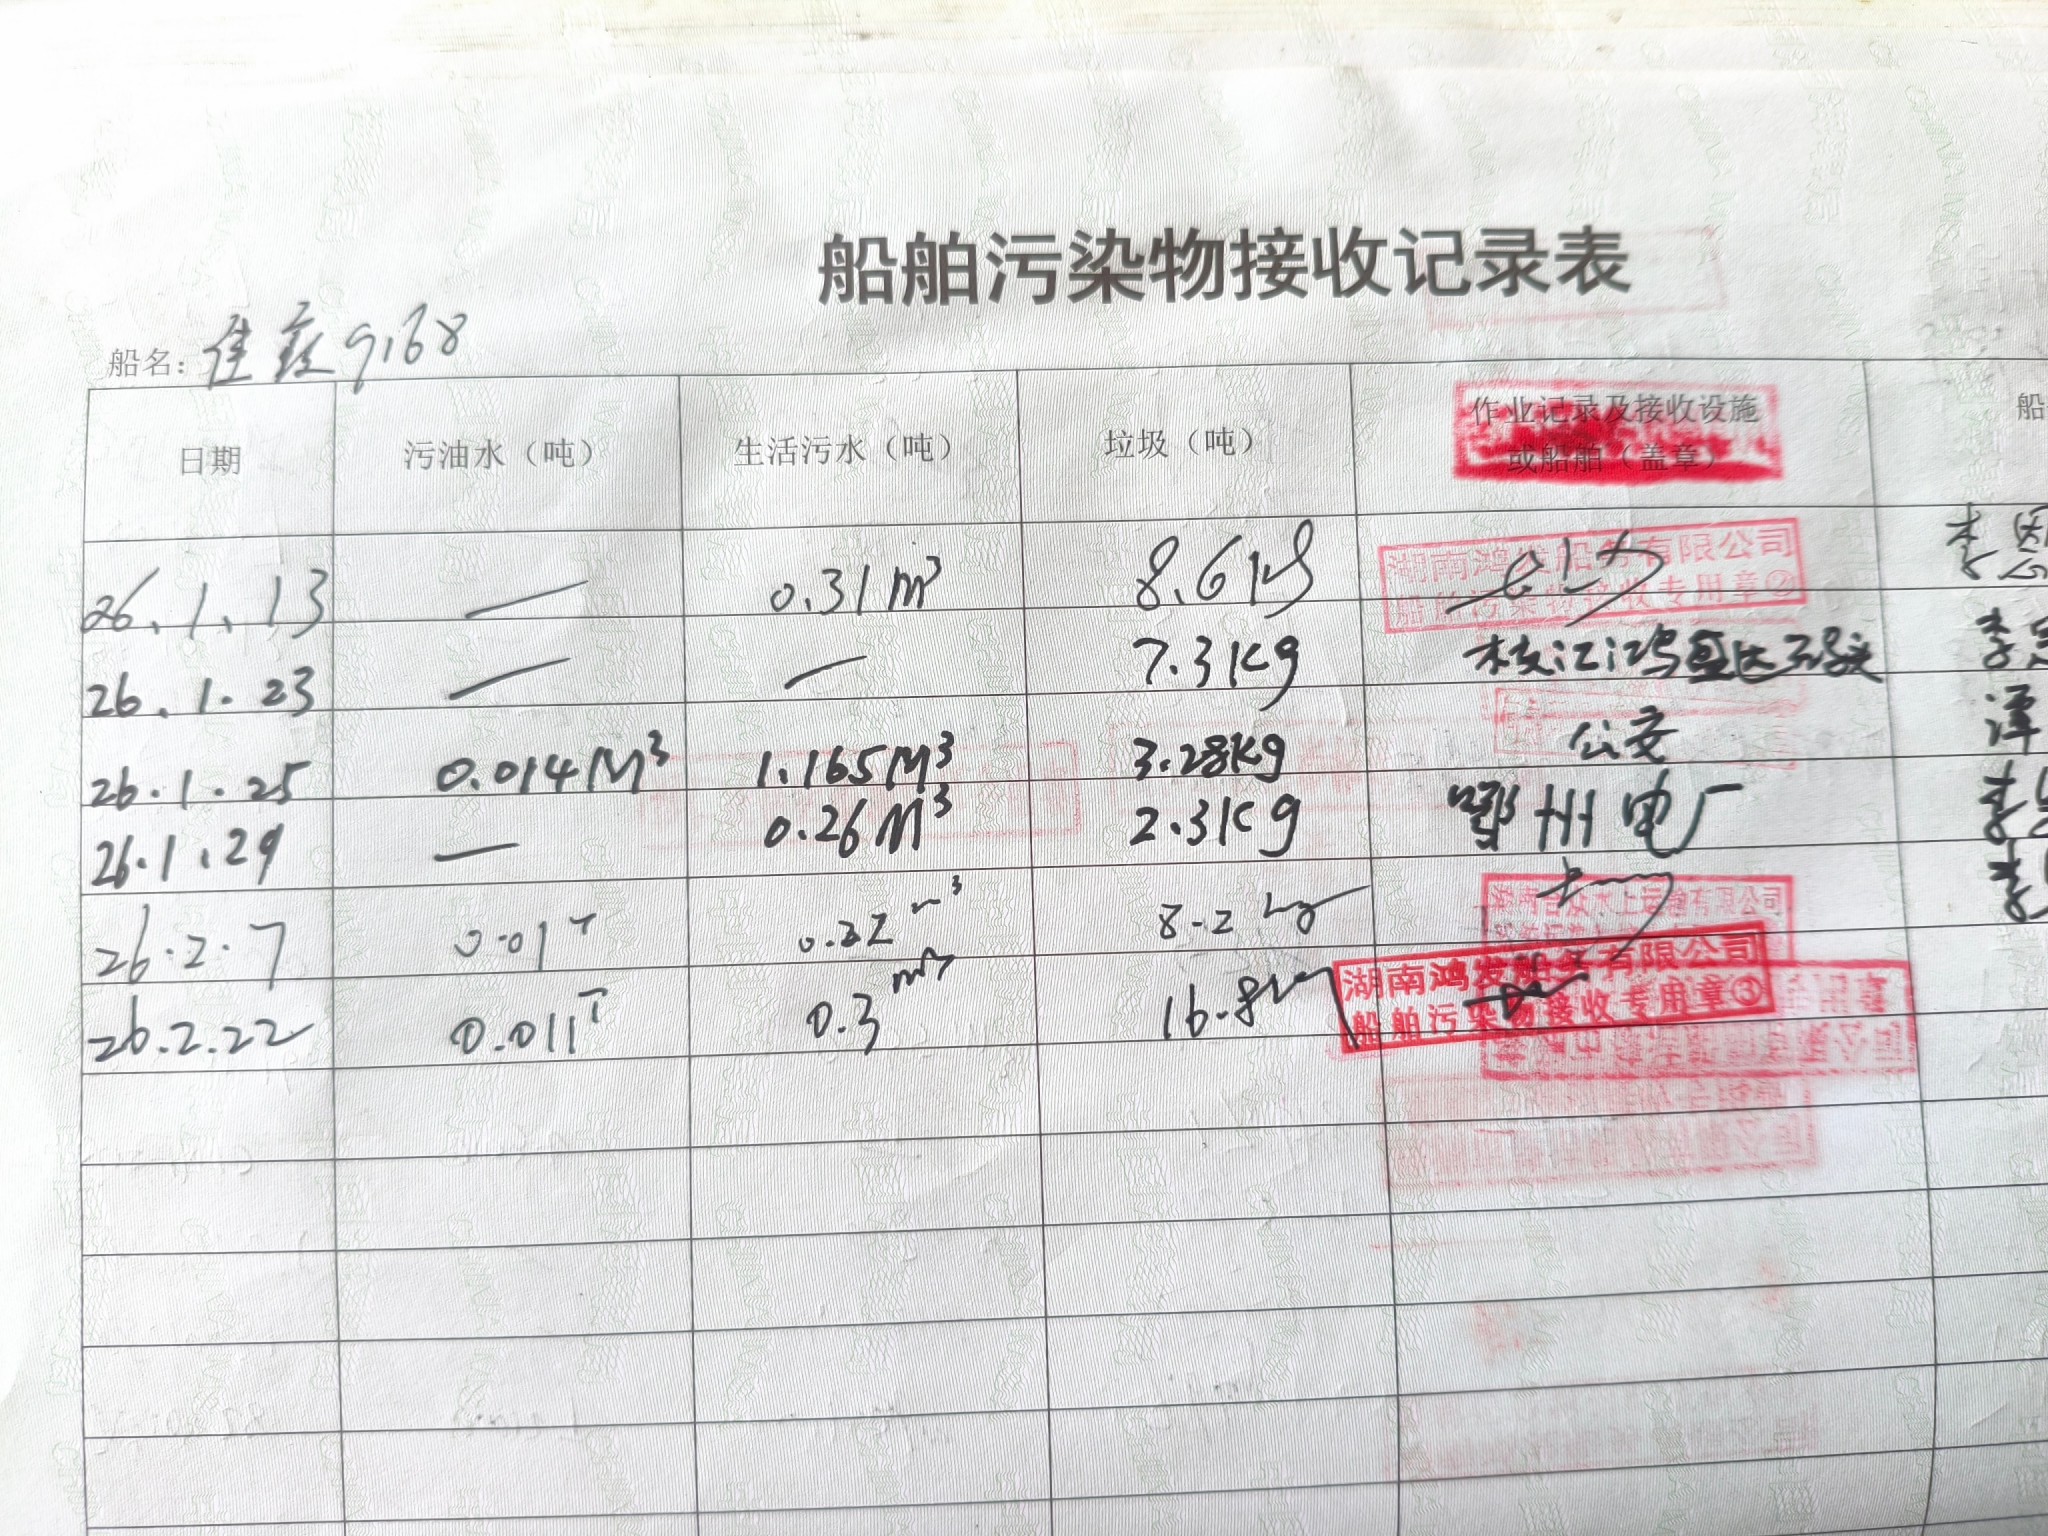 船舶污染物接收记录表
船名: 佳 9168
日期 污油水（吨） 生活污水（吨） 垃圾（吨） 作业记录及接收设施或船舶（盖章） 船
26.1.13 — 0.31m³ 8.6kg 湖南鸿发船务有限公司 船舶污染物接收专用章② 李
26.1.23 — — 7.3Kg 枝江鸿盛达码头 李
26.1.25 0.014M³ 1.165M³ 3.28Kg 公安 潭
26.1.29 — 0.26M³ 2.3Kg 鄂州电厂 李
26.2.7 0.01T 0.22m³ 8.2kg 水上运输有限公司 李
26.2.22 0.011T 0.3m³ 16.8kg 湖南鸿发船务有限公司 船舶污染物接收专用章③